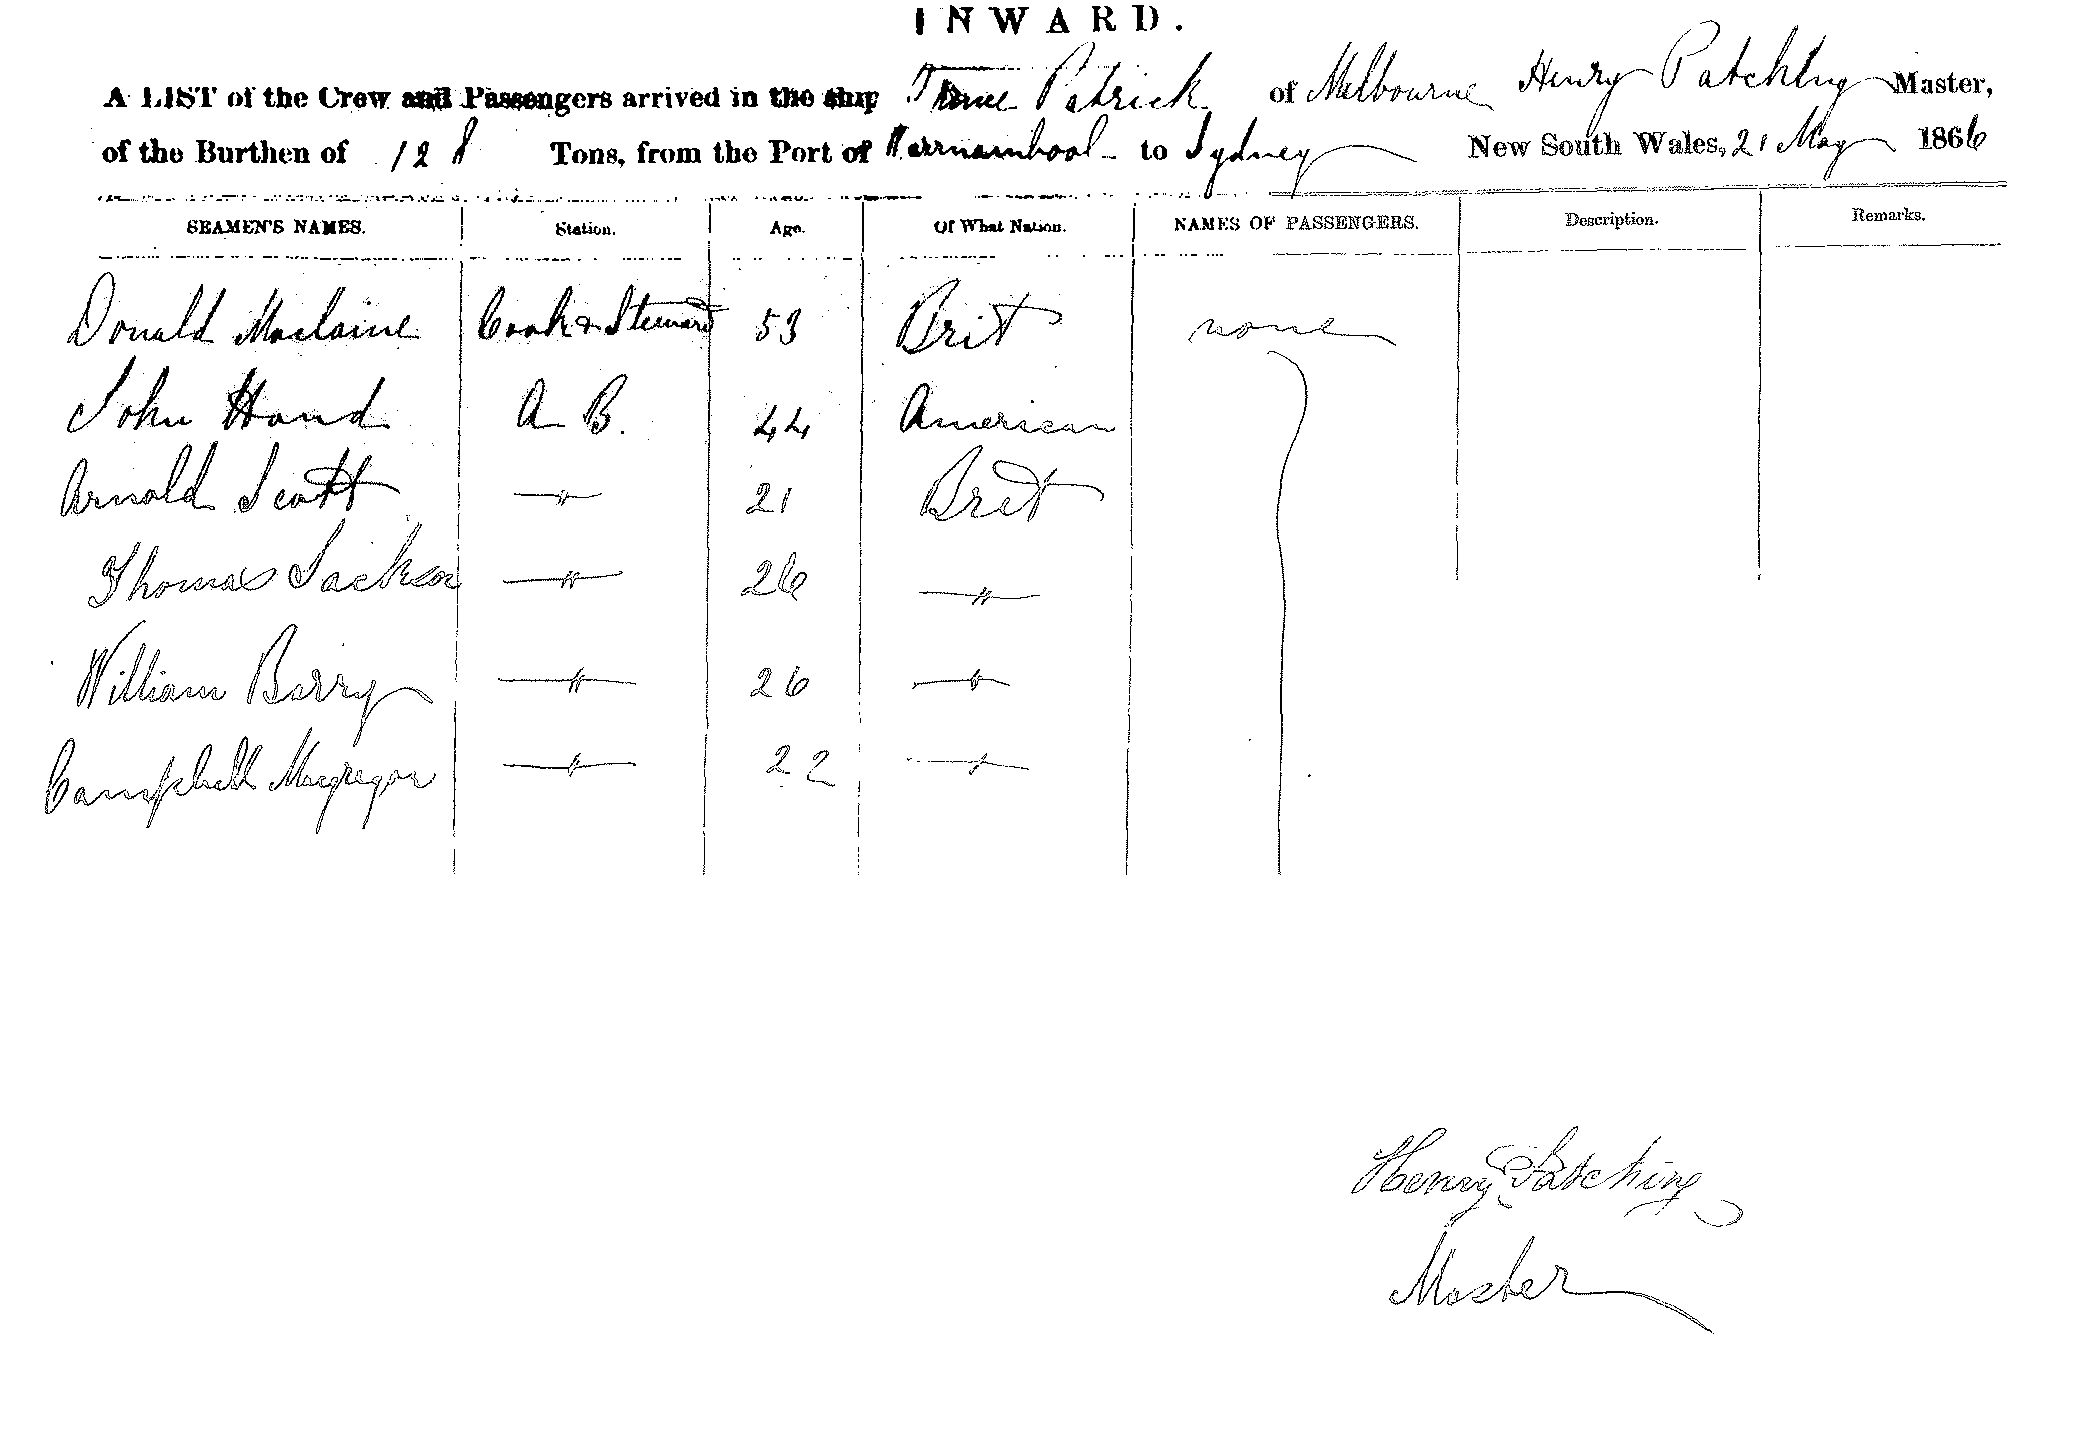 INWARD.
A LIST of the Crew and Passengers arrived in the ship Patrick of Melbourne Henry Patching Master,
of the Burthen of 128 Tons, from the Port of Warrnambool to Sydney New South Wales, 21 May 1866
SEAMEN'S NAMES. Station. Age. Of What Nation. NAMES OF PASSENGERS. Description. Remarks.
Donald Maclaine Cook & Steward 53 Brit none
John Hand A B. 44 American
Arnold Scott " 21 Brit
Thomas Jackson " 26 "
William Barry " 26 "
Campbell Macgregor " 22 "
Henry Patching
Master